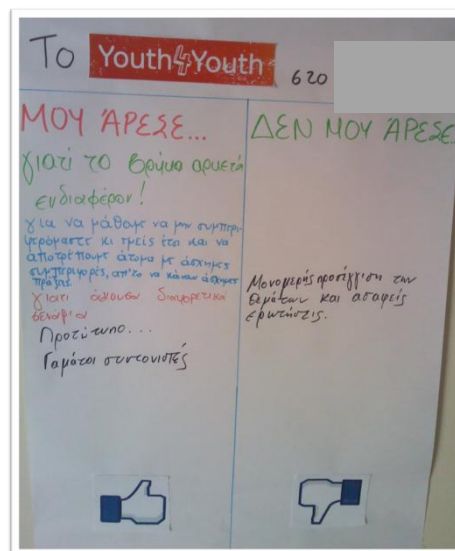 Το Youth4Youth στο
ΜΟΥ ΆΡΕΣΕ...
γιατί το βρήκα αρκετά
ενδιαφέρον!
για να μάθουμε να μην συμπερι-
φερόμαστε κι εμείς έτσι και να
αποτρέπουμε άτομα με άσχημες
συμπεριφορές, απ'το να κάνουν άσχημες
πράξεις
γιατί άκουσα διαφορετικά
σενάρια
Πρωτότυπο...
Γαμάτοι συντονιστές
ΔΕΝ ΜΟΥ ΆΡΕΣΕ...
Μονομερής προσέγγιση των
θεμάτων και ασαφείς
ερωτήσεις.